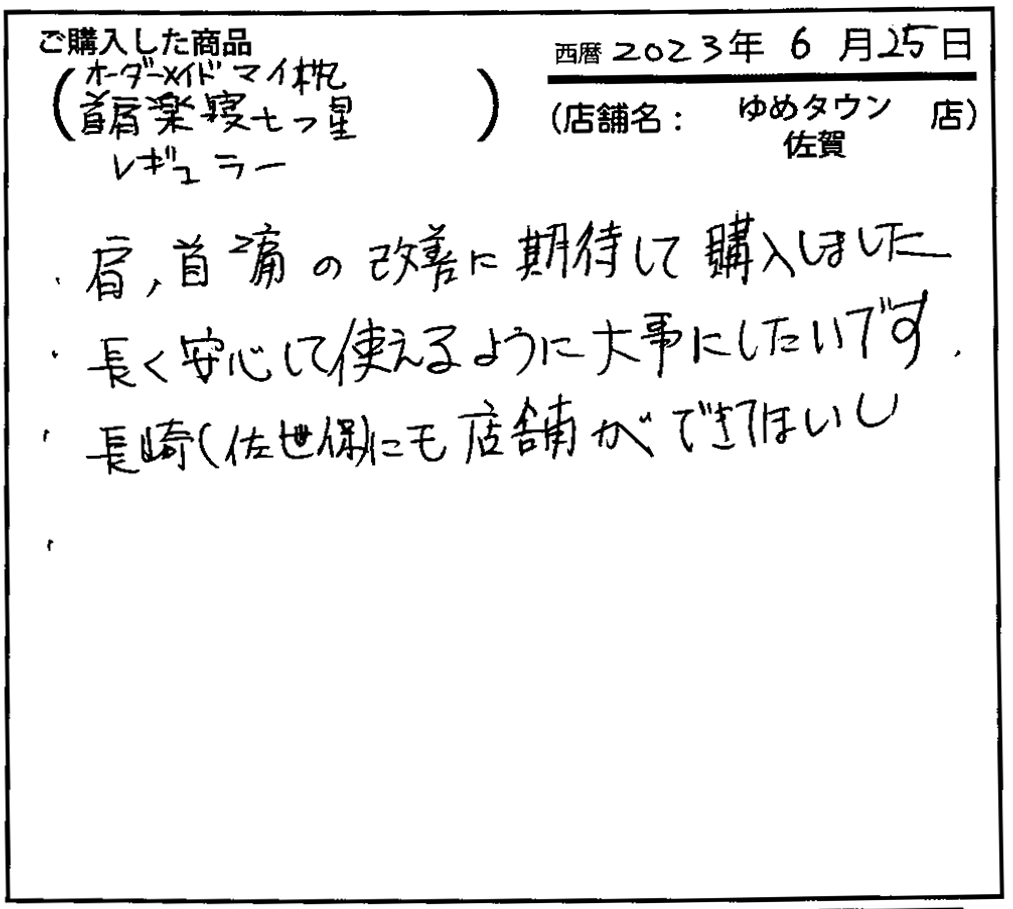 ご購入した商品
西暦 2023年 6月25日
(オーダーメイド マイ枕
首肩楽寝七つ星
レギュラー)
(店舗名: ゆめタウン 佐賀 店)
・肩,首痛の改善に期待して購入しました
・長く安心して使えるように大事にしたいです.
・長崎(佐世保)にも店舗ができてほしい
・